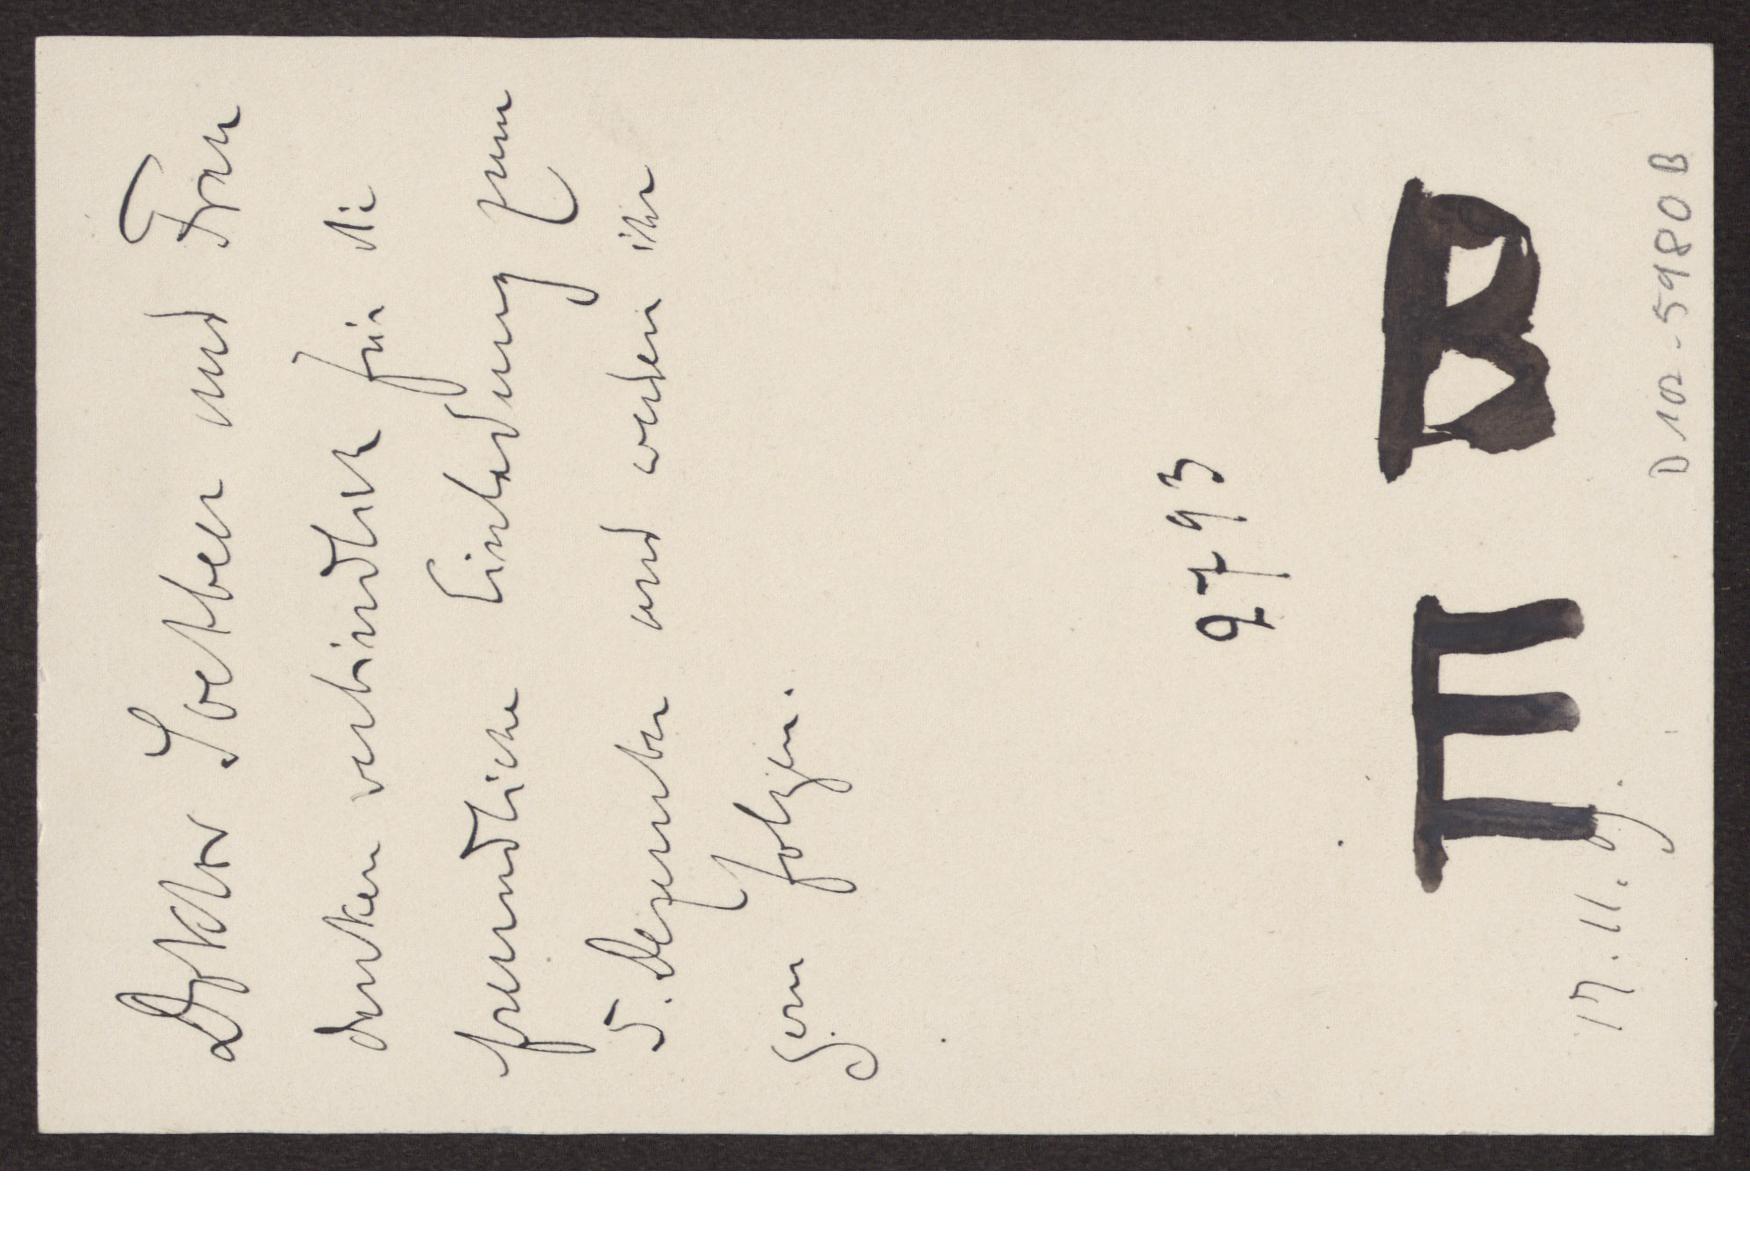 Doktor Soetbeer und Frau
danken verbindlich für die
freundliche Einladung zum
5. Dezember und werden ihr
gern folgen.
2793
III B
17. 11. 09.
D 102-5980 B